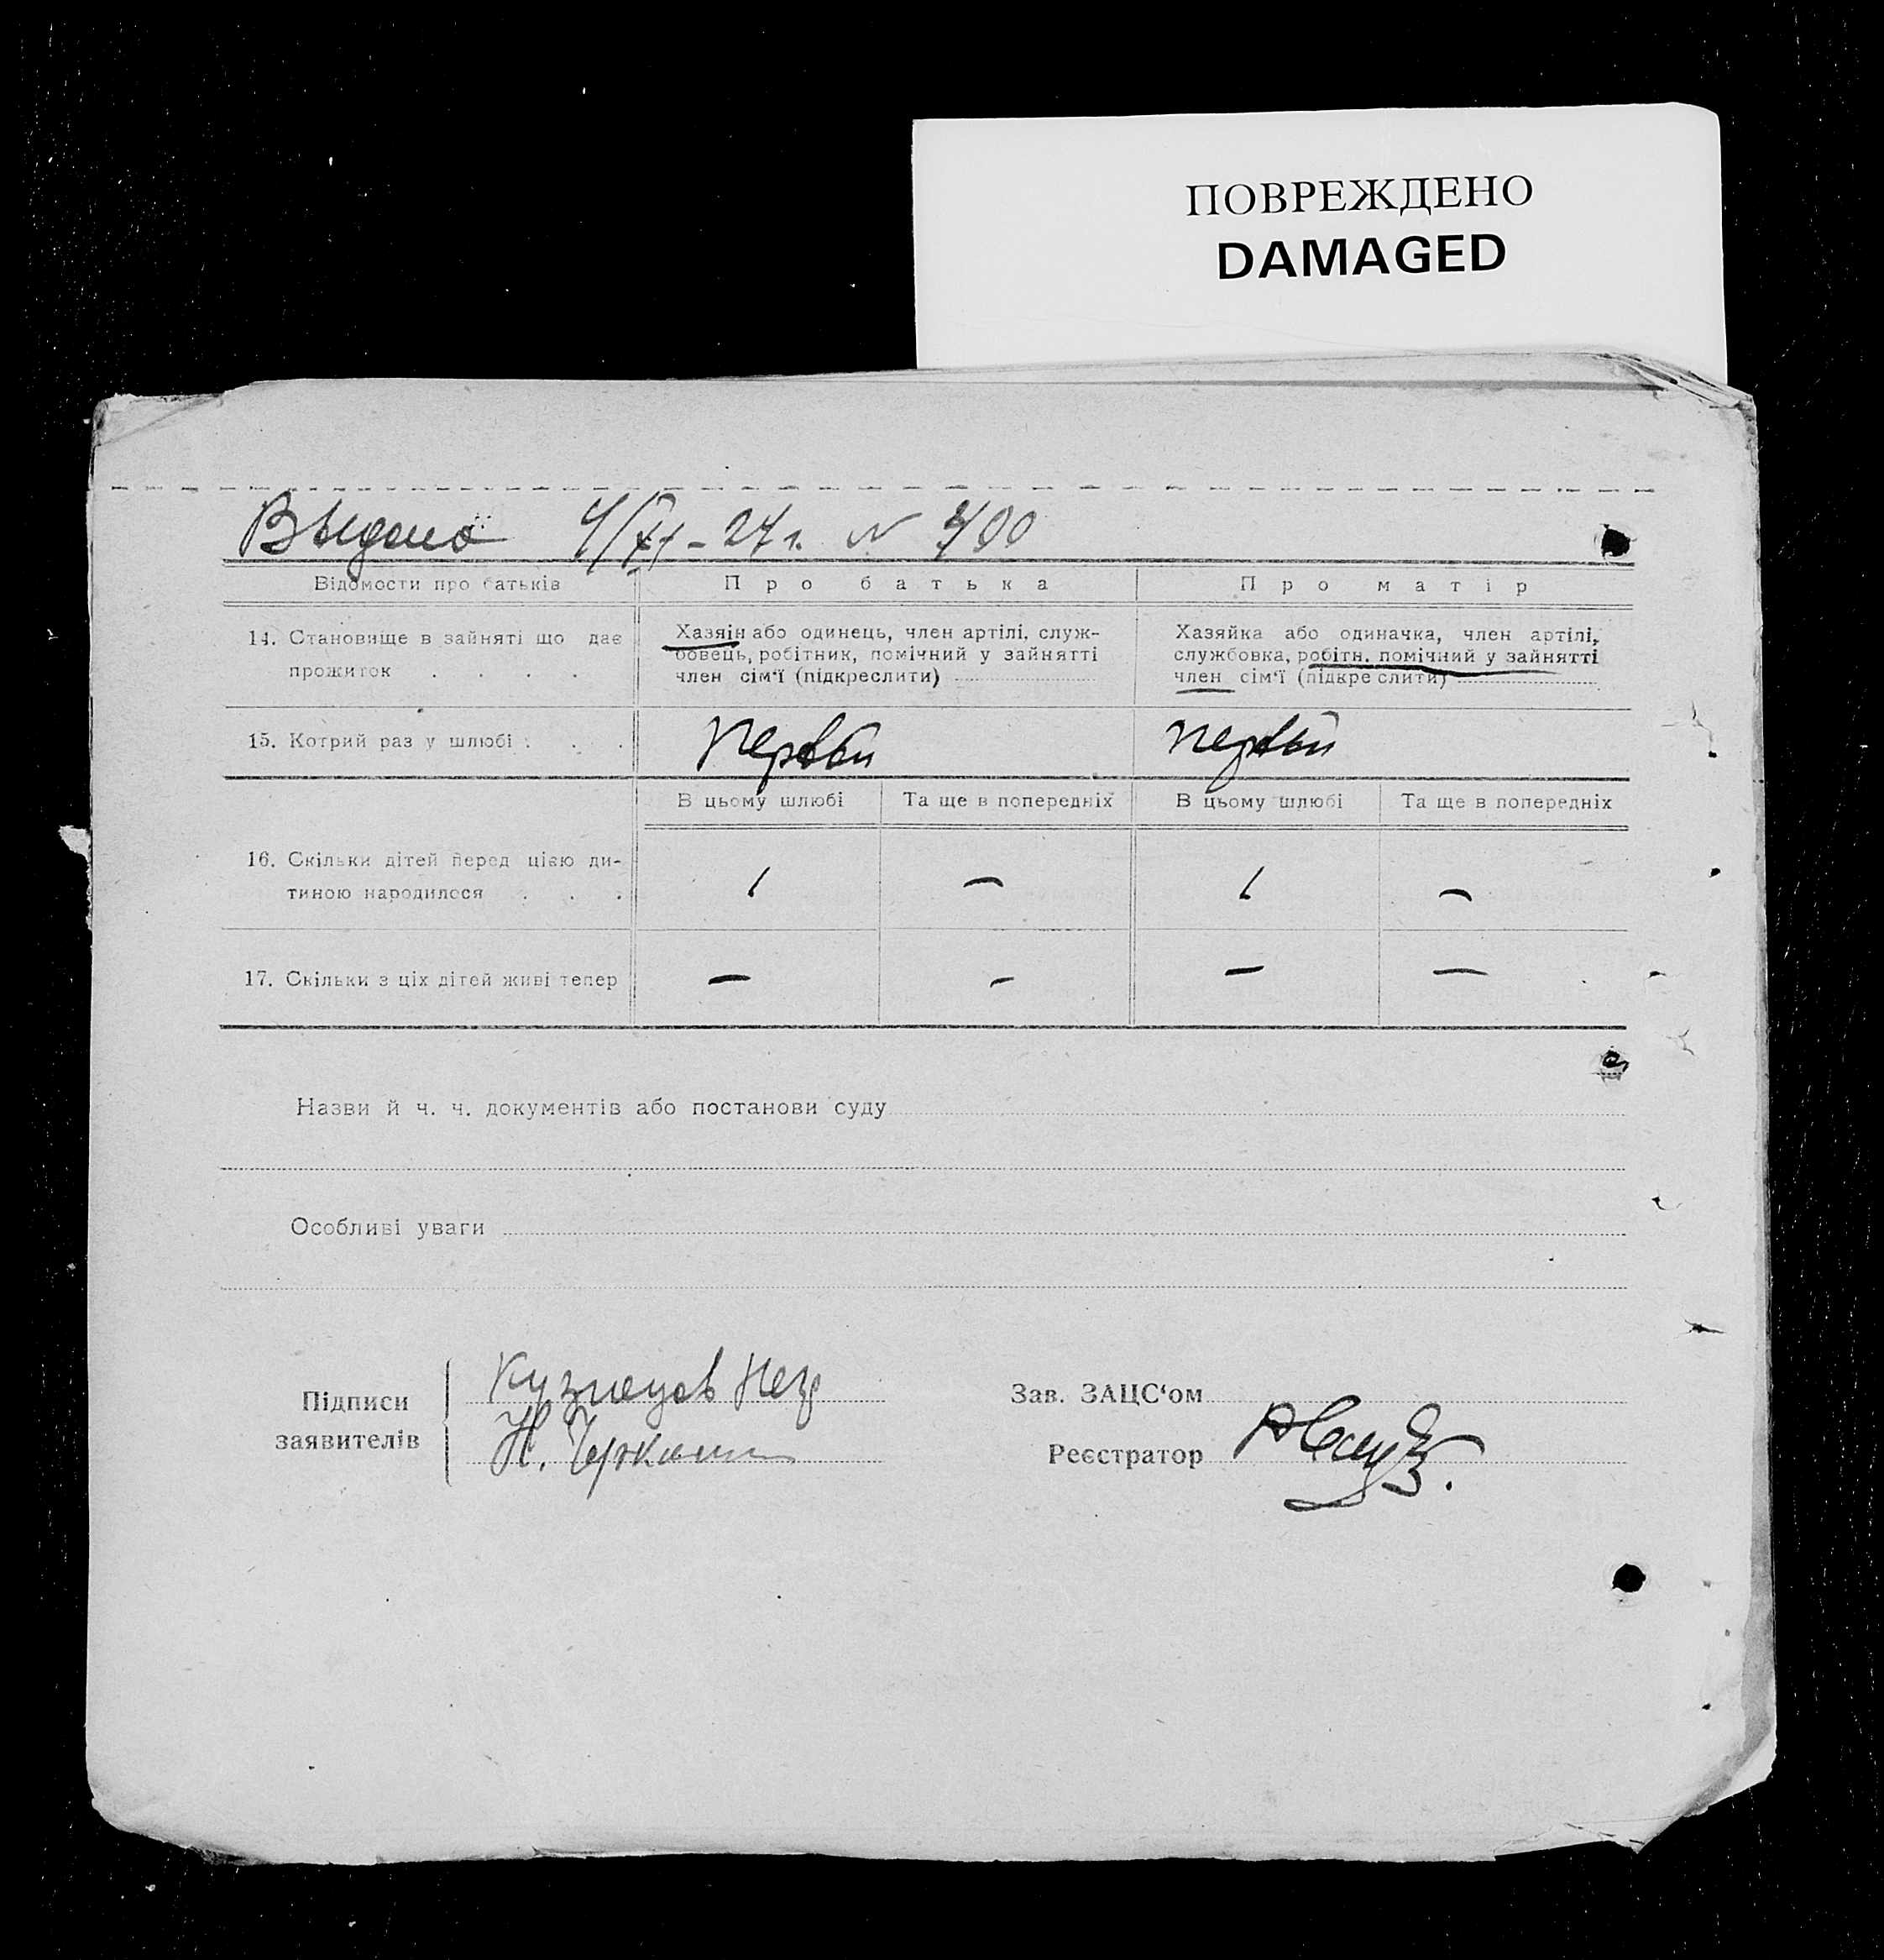 ПОВРЕЖДЕНО
DAMAGED
Выдано 4/XI-27 г. N
Відомости про батьків Про батька Про матір
14. Становище в зайняті що дає прожиток . . . .
Хазяїн або одинець, член артілі, служ-
бовець, робітник, помічний у зайнятті
член сім'ї (підкреслити)
Хазяйка або одиначка, член артілі,
службовка, робітн. помічний у зайнятті
член сім'ї (підкреслити)
15. Котрий раз у шлюбі . . . первый первый
В цьому шлюбі Та ще в попередніх В цьому шлюбі Та ще в попередніх
16. Скільки дітей перед цією ди-
тиною народилося . . . 1 — 1 —
17. Скільки з ціх дітей живі тепер — — — —
Назви й ч. ч. документів або постанови суду
Особливі уваги
Підписи
заявителів
Кузнецов
Н.
Зав. ЗАЦС‘ом
Реєстратор